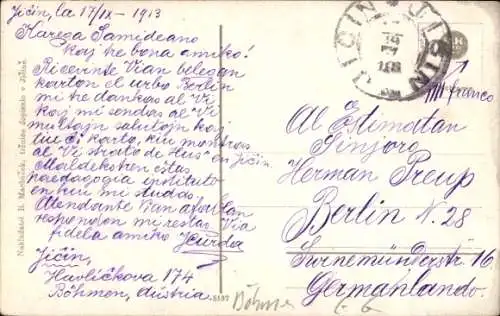 Jičín, la 17/IX - 1913
Karega Samideano
kaj tre bona amiko!
Ricevinte Vian belegan
karton el urbo Berlin
mi tre dankas al Vi
kaj mi sendas al Vi
multajn salutojn kaj
tiu ĉi karto, kiu montras
al Vi "strato de Hus" en Jičín.
Maldekstren estas
paedagogia instituto
en kiu mi studas.
Atendante Vian afablan
respondon mi restas Via
fidela amiko
Jičín,
Havlíčkova 174
Böhmen, Aŭstria
Nakladatel B. Macháček, tržnice dopisnic v Jičíně.
5197
JIČIN JIČIN
franco
Al Estimatan
Sinjoro
Herman Preup
Berlin N. 28
Swinemünderstr 16
Germanlando.
Böhme